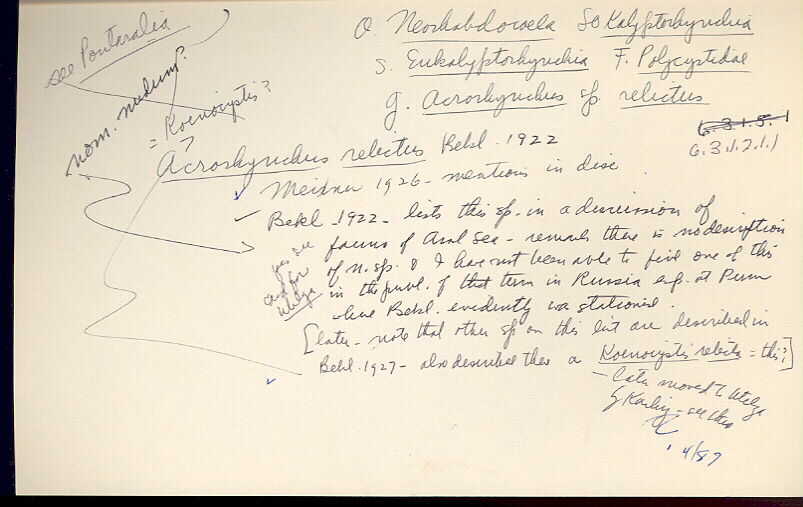 O. Neorhabdocoela SO Kalyptorhynchia
S. Eukalyptorhynchia F. Polycystidae
g. Acrorhynchus sp. relictus
6.3.1.5.1
6.3.1.7.1.1
see Pontaralia
nom. nudum?
= Koenocystis?
?
Acrorhynchus relictus Bekl. 1922
Meixner 1926 - mentions in disc.
Bekl. 1922 - lists this sp. in a discussion of
fauna of Aral Sea - remarks there is no description
of n. sp. & I have not been able to find one of this
in the publ. of that term in Russia esp. at Perm
where Bekl. evidently was stationed.
yes see
card for
Utelga
[later - note that other sp on this list are described in
Bekl. 1927 - also described there a Koenocystis relicta = this?]
- Later moved to Utelga
by Karling - see this
4/87